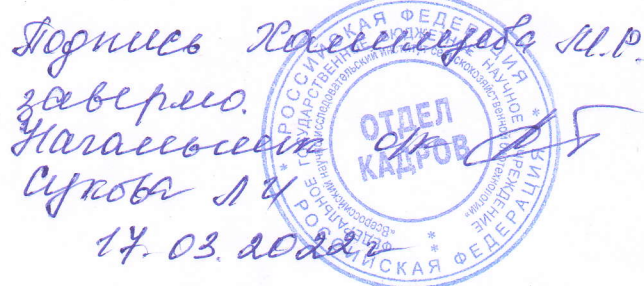 Подпись Халилуева М.Р.
заверяю.
Начальник ок
Сукова Л И
17.03.2022г
РОССИЙСКАЯ ФЕДЕРАЦИЯ * РОССИЙСКАЯ ФЕДЕРАЦИЯ *
ФЕДЕРАЛЬНОЕ ГОСУДАРСТВЕННОЕ БЮДЖЕТНОЕ НАУЧНОЕ УЧРЕЖДЕНИЕ
"Всероссийский научно-исследовательский институт сельскохозяйственной биотехнологии"
ОТДЕЛ
КАДРОВ